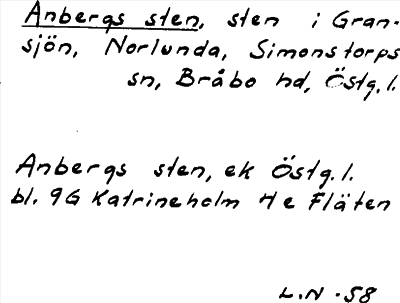 Anbergs sten, sten i Gran-
sjön, Norlunda, Simonstorps
sn, Bråbo hd, Östg.l.
Anbergs sten, ek Östg.l.
bl. 9G Katrineholm 4e Fläten
L.N.-58